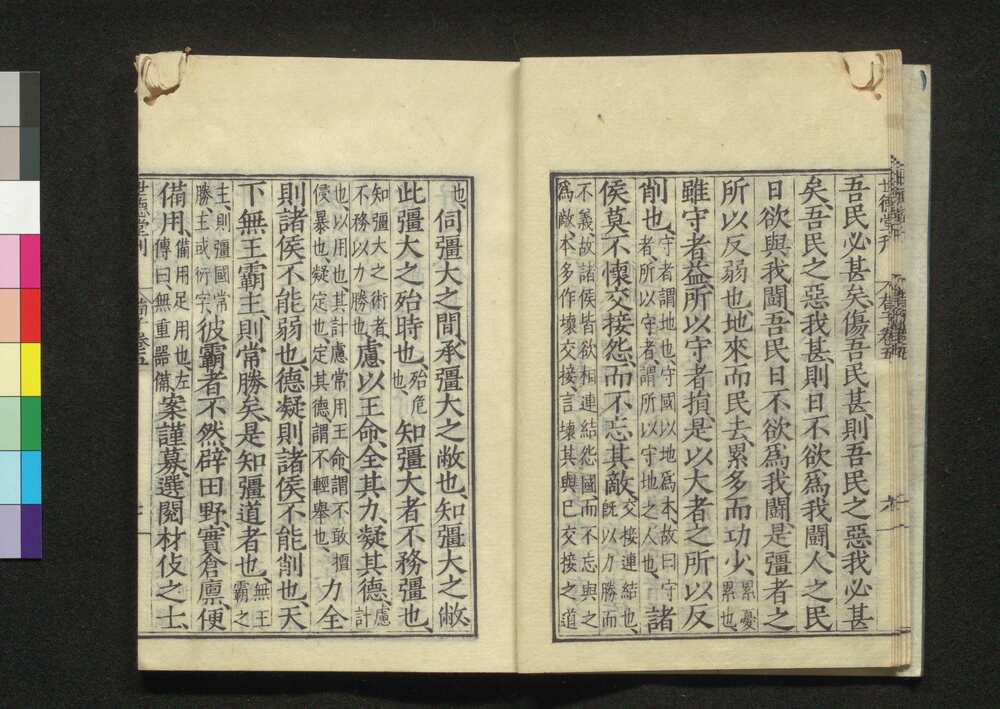 世德堂刊
吾民必甚矣、傷吾民甚、則吾民之惡我必甚
矣、吾民之惡我甚、則日不欲爲我鬪、人之民
日欲與我鬪、吾民日不欲爲我鬪、是彊者之
所以反弱也、地來而民去、累多而功少、累憂
累也、
雖守者益、所以守者損、是以大者之所以反
削也、守者謂地也、守國以地爲本、故曰守
者、所以守者、謂所以守地之人也、諸
侯莫不懷交接怨、而不忘其敵、交接連結也、
既以力勝而
不義、故諸侯皆欲相連結怨國而不忘與之
爲敵、本多作壞交接、言壞其與已交接之道
也、伺彊大之間、承彊大之敝也、知彊大之敝、
此彊大之殆時也、殆危
也、知彊大者不務彊也、
知彊大之術者、
不務以力勝也、慮以王命、全其力、凝其德、慮
計
也、以用也、其計慮常用王命、謂不敢擅
侵暴也、凝定也、定其德、謂不輕舉也、力全
則諸侯不能弱也、德凝則諸侯不能削也、天
下無王霸主、則常勝矣、是知彊道者也、無王
霸之
主、則彊國常
勝、主或衍字、彼霸者不然、辟田野、實倉廩、便
備用、備用足用也、左
傳曰、無重器備、案謹募選閱材伎之士、
世德堂刊 荀子卷五